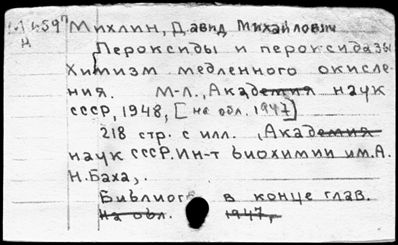 Михлин, Давид Михайлович
Пероксиды и пероксидазы
Химизм медленного окисле-
ния. М-Л., Академия наук
СССР, 1948, [на обл. 1947]
218 стр. с илл. , Академия
наук СССР. Ин-т биохимии им. А.
Н. Баха, .
Библиогр. в конце глав.
на обл. 1947,